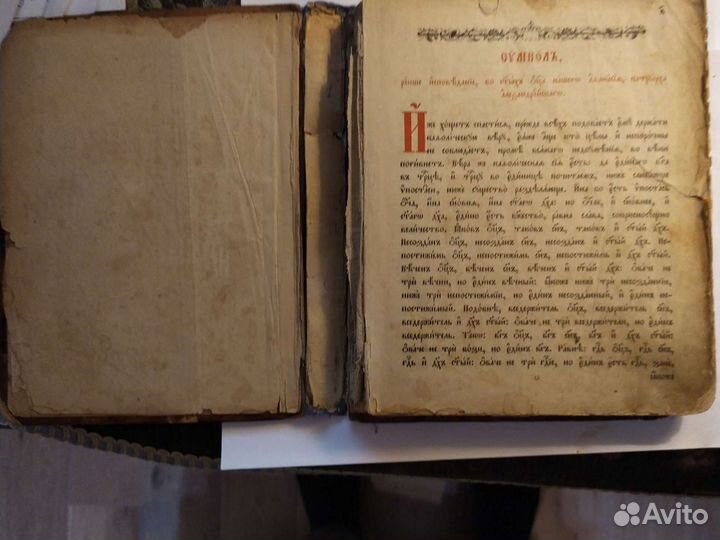 СѶМВОЛЪ,
во ст҃ыхъ ѻ҆ц҃а нашегѡ а҆ѳана́сїа, патрїа́рха
а҆леѯандрі́йскагѡ.
И҆́же хо́щетъ спасти́сѧ, пре́жде всѣ́хъ подоба́етъ є҆мꙋ̀ держа́ти
каѳолі́ческꙋю вѣ́рꙋ, є҆ѧ́же а҆́ще кто̀ цѣ́лы и҆ непоро́чны
не соблюда́етъ, кромѣ̀ всѧ́кагѡ недоꙋмѣ́нїѧ, во вѣ́ки
поги́бнетъ. Вѣ́ра же каѳолі́ческаѧ сїѧ̀ є҆́сть: да є҆ди́наго бг҃а
въ трⷪ҇цѣ, и҆ трⷪ҇цꙋ во є҆ди́ницѣ почита́емъ, нижѐ слива́юще
ѵ҆поста̑си, нижѐ сꙋщество̀ раздѣлѧ́юще. И҆́на бо є҆́сть ѵ҆поста́сь
ѻ҆́ч҃а, и҆́на сн҃о́внѧ, и҆́на ст҃а́гѡ дх҃а: но ѻ҆́ч҃ее, и҆ сн҃о́внее, и҆
ст҃а́гѡ дх҃а, є҆ди́но є҆́сть бж҃ество̀, ра́вна сла́ва, соприсносꙋ́щно
вели́чество. Ꙗ҆ко́въ ѻ҆ц҃ъ, тако́въ сн҃ъ, тако́въ и҆ ст҃ы́й дх҃ъ.
Несозда́нъ ѻ҆ц҃ъ, несозда́нъ сн҃ъ, несозда́нъ и҆ ст҃ы́й дх҃ъ. Не-
постижи́мь ѻ҆ц҃ъ, непостижи́мь сн҃ъ, непостижи́мь и҆ дх҃ъ ст҃ы́й.
Вѣ́ченъ ѻ҆ц҃ъ, вѣ́ченъ сн҃ъ, вѣ́ченъ и҆ ст҃ы́й дх҃ъ: ѻ҆ба́че не
трѝ вѣ́чни, но є҆ди́нъ вѣ́чный: ꙗ҆́коже нижѐ трѝ несозда́ннїи,
нижѐ трѝ непостижи́мїи, но є҆ди́нъ несозда́нный, и҆ є҆ди́нъ не-
постижи́мый. Подо́бнѣ, вседержи́тель ѻ҆ц҃ъ, вседержи́тель сн҃ъ,
вседержи́тель и҆ дх҃ъ ст҃ы́й: ѻ҆ба́че не трѝ вседержи́тели, но є҆ди́нъ
вседержи́тель. Та́кѡ: бг҃ъ ѻ҆ц҃ъ, бг҃ъ сн҃ъ, бг҃ъ и҆ дх҃ъ ст҃ы́й:
ѻ҆ба́че не трѝ бо́зи, но є҆ди́нъ бг҃ъ. Ра́внѣ: гдⷭ҇ь ѻ҆ц҃ъ, гдⷭ҇ь сн҃ъ,
гдⷭ҇ь и҆ дх҃ъ ст҃ы́й: ѻ҆ба́че не трѝ гдⷭ҇и, но є҆ди́нъ є҆́сть гдⷭ҇ь, занѐ,
ꙗ҆́коже
Avito